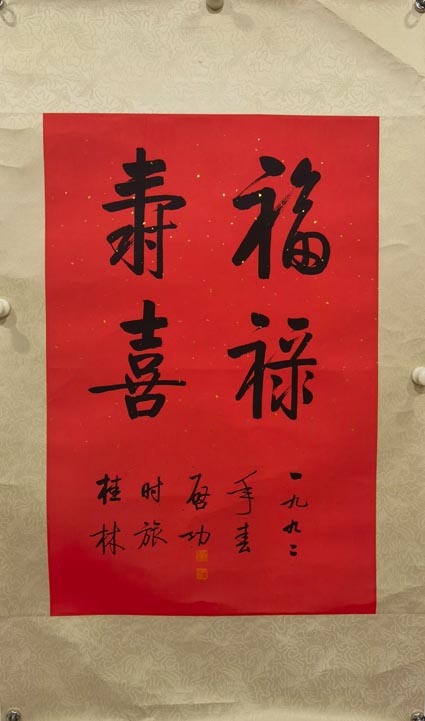 福禄
寿喜
一九九二
年春
启功
时旅
桂林